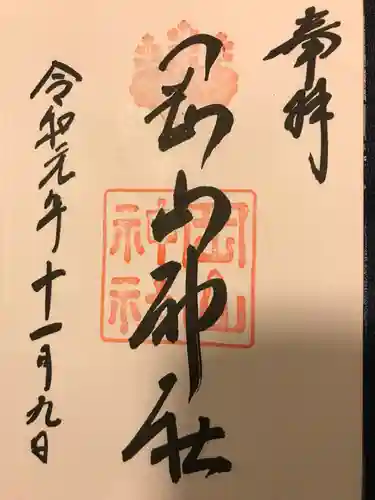 奉拝
岡山神社
岡山神社
令和元年十一月九日